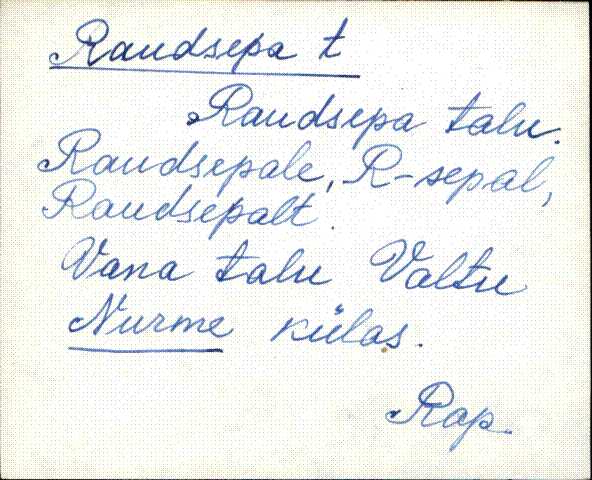 Raudsepa t
Raudsepa talu.
Raudsepale, R-sepal,
Raudsepalt.
Vana talu Valtu
Nurme külas.
Rap.